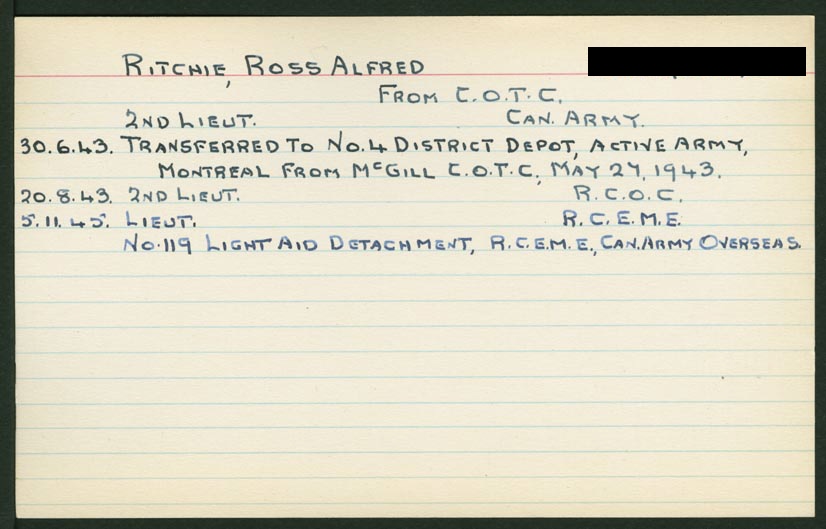 RITCHIE, ROSS ALFRED
FROM C.O.T.C.
2ND LIEUT. CAN. ARMY.
30.6.43. TRANSFERRED TO NO.4 DISTRICT DEPOT, ACTIVE ARMY,
MONTREAL FROM McGILL C.O.T.C., MAY 27, 1943.
20.8.43. 2ND LIEUT. R.C.O.C.
5.11.45. LIEUT. R.C.E.M.E.
NO.119 LIGHT AID DETACHMENT, R.C.E.M.E., CAN. ARMY OVERSEAS.